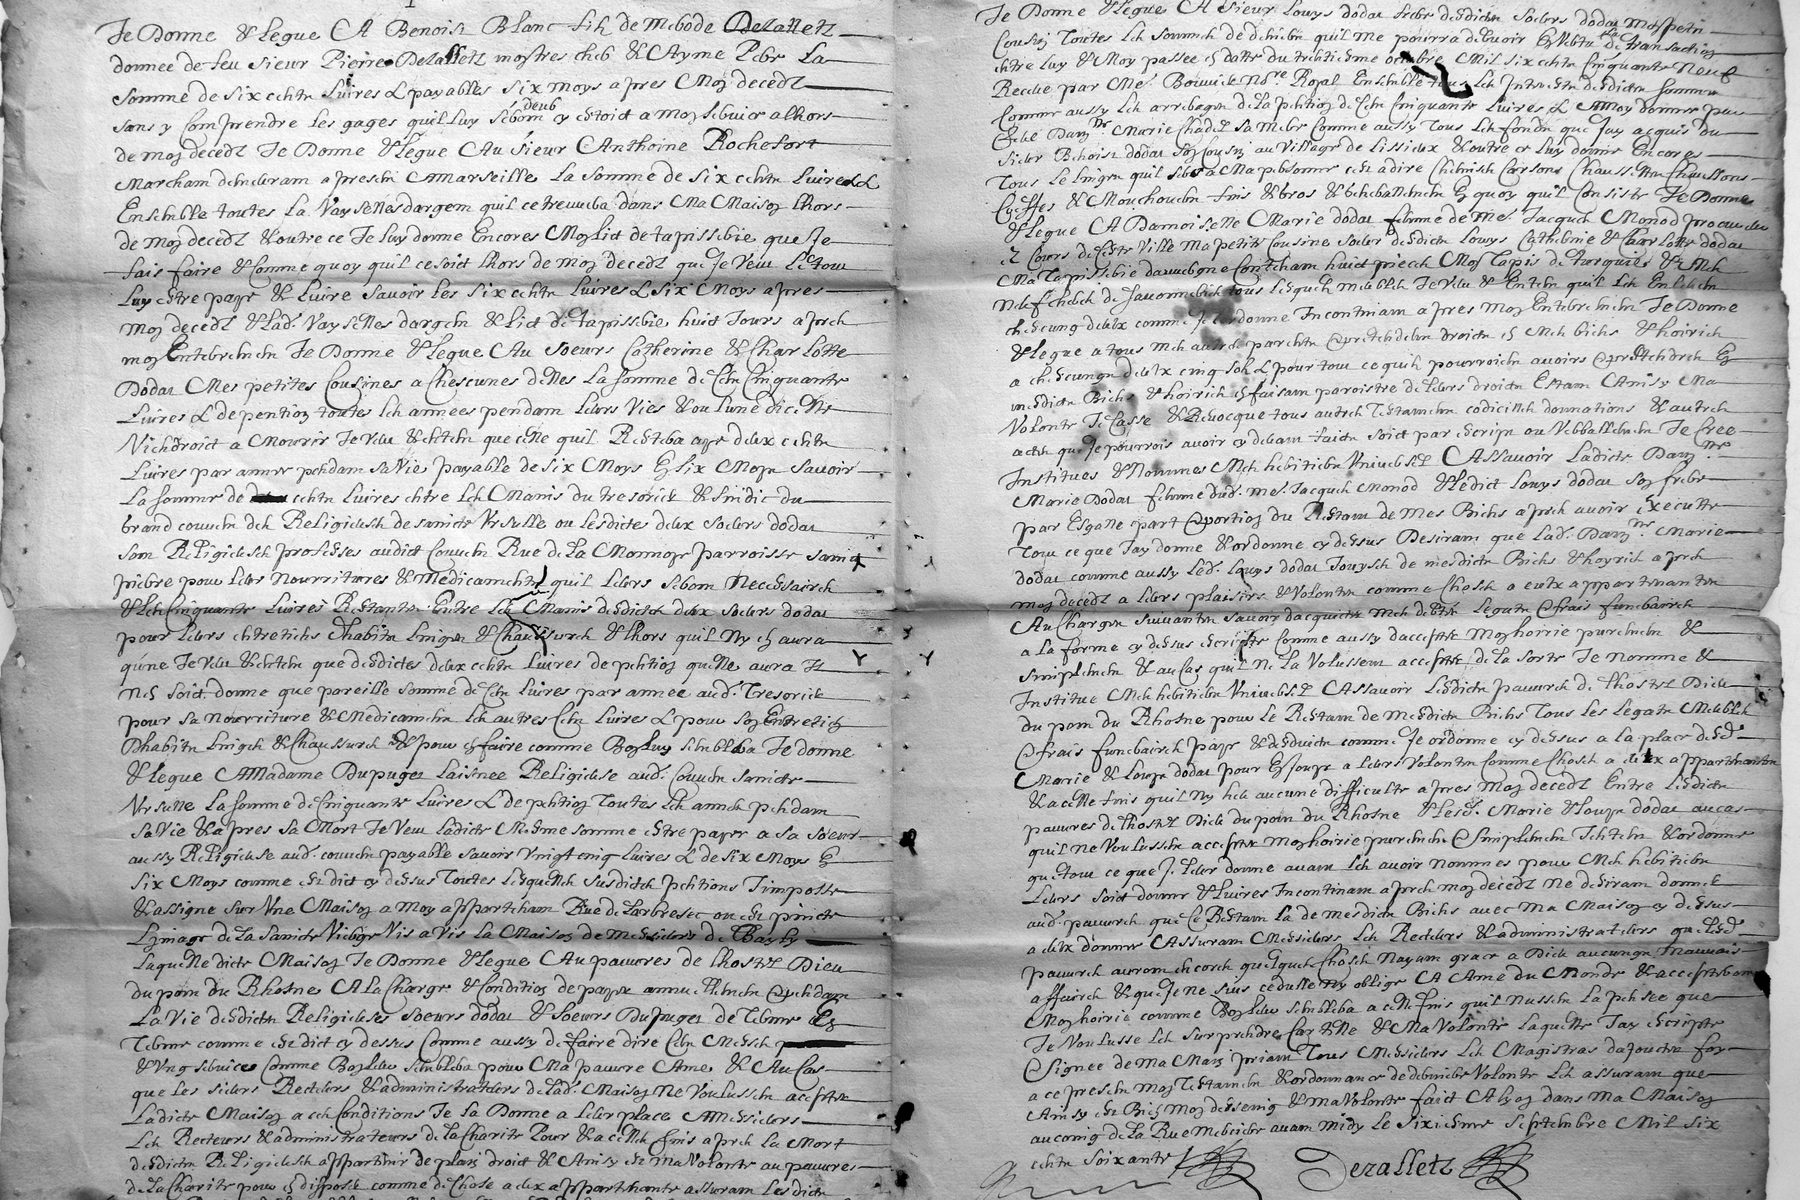 Je Donne & legue A Benoist Blanc fils de Mc bode Dezalletz
donnee de feu sieur Pierre Dezalletz La
somme de six cents livres L payables six moys apres Moy decedt
sans y Comprendre les gages quil luy seront deub cy estoit a moy servir alhors
de moy decedt Je Donne & legue Au sieur Anthoine Rochefort
Marchant demeurant a present A Marseille La somme de six cents livres L
Ensemble toutes La Vayselles dargent quil ce treuvera dans Ma Maison lhors
de moy decedt & outre ce Je luy donne Encores Moy lict de tapisserie que Je
fais faire & comme quoy quil ce soict lhors de moy decedt que Je veux le tout
Luy estre paye & livre savoir les six cents livres L six Moys apres
moy decedt & lad. Vayselles dargent & lict de tapisserie huict Jours apres
moy Enterrement Je Donne & legue Au soeurs Catherine & Charlotte
Dodat Mes petites Cousines a Chescunes delles La somme de Cent Cinquante
Livres L de pention toutes les annees pendant leurs vies & ou lune dicelle
Viendroict a Mourir Je veux & entens que celle quil Restera aye deux cents
Livres par annee pendant sa vie payable de six Moys En six Moys savoir
La somme de cents livres entre les Mains du tresorier & sindic du
grand couvent des Religieuses de saincte Ursulle ou lesdictes deux soeurs dodat
sont Religieuses professes audict Couvent Rue de La Monnoye parroisse sainct
pierre pour leurs nourritures & medicaments quil leurs seront Necessaires
& les Cinquante livres Restantes Entre les Mains desdictes deux soeurs dodat
pour leurs entretiens dhabits linges & chaussures & lhors quil Ny en aura
qune Je veux & entens que desdictes deux cents livres de pention quelle aura Il
Nen soict donne que pareille somme de Cent livres par annee aud. Tresorier
pour sa nourriture & Medicaments les autres Cent livres L pour son Entretien
Dhabits linges & Chaussures & pour en faire comme Bon luy semblera Je donne
& legue A Madame Dupuget laisnee Religieuse aud. Couvent saincte
Ursulle La somme de Cinquante livres L de pention Toutes les annees pendant
sa vie & apres sa Mort Je veux ladicte Mesme somme estre payee a sa soeur
aussy Religieuse aud. couvent payable savoir vingt cinq livres L de six Moys En
six Moys comme est dict cy dessus Toutes lesquelles susdictes pentions J imposte
& assigne sur Une Maison a Moy appartenant Rue de Larbresec ou est pincte
Limage de La Saincte Vierge Vis a Vis La Maison de Messieurs de Bagly
Laquelle dicte Maison Je Donne & legue Au pauvres de lhostel Dieu
du pont du Rhosne A La Charge & Condition de payer annuellement & pendant
La Vie desdictes Religieuses soeurs dodat & soeurs Dupuget de Terme En
Terme comme est dict cy dessus Comme aussy de faire dire Cent Messes
& Ung service Comme Bon leur semblera pour Ma pauvre Ame & Au Cas
que les sieurs Recteurs & administrateurs de lad. Maison Ne Voulussent accepter
Ladicte Maison a ces Conditions Je La Donne a leur place A Messieurs
Les Recteurs & administrateurs de La Charite Pour & a celles fins apres La Mort
desdictes Religieuses appartenir de plain droict & Ainsy est ma Volonte au pauvres
de La Charite pour en disposer comme de Chose a eux appartenante assurant lesdicts
Je Donne & legue A sieur Louys dodat frere desdictes soeurs dodat mon petit
Cousin Toutes les sommes de deniers quil me pourra debvoir En Vertu de La transaction
entre luy & Moy passee en date du trentiesme octobre Mil six cents Cinquante Neuf
Recue par Me. Notre Royal Ensemble tous les Interests desdictes sommes
Comme aussy les arrerages de La pention de Cent Cinquante livres L A Moy donnee par
Marie sa Mere Comme aussy Tous les fonds que Jay acquis du
sieur Benoist dodat son Cousin au village de Lissieux & outre ce luy donne Encores
Tous Le linge quil sera A Ma personne cest a dire Chemises Carsons Chaussettes Chaussons
Coyffes & Mouchouers fins & gros & Generallement En quoy quil Consiste Je Donne
& legue A Damoiselle Marie dodat femme de Me. Jacques Monod procureur
es Cours de Ceste Ville Ma petite Cousine soeur desdicts Louys Catherine & Charlotte dodat
Ma Tapisserie dauvergne Contenant huict pieces Mon Tapis de turquie & Mes
tous lesquels meubles Je veux & Entens quil les
chescung deulx comme Je Lordonne Incontinant apres Moy Enterrement Je Donne
& legue a tous mes autres parents pretendents droicts en Mes biens & hoiries
a chescung deulx cinq sols L pour tout ce quils pourroient avoir & pretendre En
mesdicts Biens & hoiries en faisant paroistre de leurs droicts Estant Ainsy Ma
Volonte Je Casse & Revocque tous autres Testaments codicilles donnations & autres
actes que Je pourrois avoir cy devant faicts soict par escript ou Verballement Je Cree
Institues & Nommes Mes heritiers Universels Assavoir Ladicte
Marie Dodat femme dud. Me. Jacques Monod & ledict Louys dodat son frere
par Esgalle part & portion du Restant de Mes Biens apres avoir Executte
Tout ce que Jay donne & ordonne cy dessus Desirant que lad. Marie
dodat comme aussy led. Louys dodat Jouysse de mesdicts Biens & hoyries apres
moy decedt a leurs plaisirs & volontes comme Chose a eulx appartenantes
Au Charges suivantes savoir dacquiter mes debtes legats & frais funebres
a la forme cy dessus escripte Comme aussy daccepter Moy horrie purement &
simplement & au Cas quil Ne la Voulussent accepter de la sorte Je nomme &
Institue Mes heritiers Universels Assavoir lesdicts pauvres de lhostel Dieu
du pont du Rhosne pour Le Restant de Mesdicts Biens Tous les legats Meubles
& frais funebres paye & desduicts comme Je ordonne cy dessus a la place desd.
Marie & Louys dodat pour En Jouyr a leurs volontes Comme Chose a eulx appartenantes
& a celle fins quil Ny heu aucune difficulte apres Moy decedt Entre lesdicts
pauvres de lhostel Dieu du pont du Rhosne & lesd. Marie & Louys dodat au cas
quil ne Voulussent accepter Moy hoirie purement & simplement Jentens & ordonne
que tout ce que Je leur donne avant les avoir nommes pour Mes heritiers
Leurs soict donne & livres Incontinant apres moy decedt Ne desirant donner
aud. pauvres que le Restant La de mesdicts Biens avec Ma Maison cy dessus
a eulx donnee Assurant Messieurs les Recteurs & administrateurs que lesd.
pauvres auront encores quelques Chose Nayant grace a Dieu aucungs Mauvais
affaires & que Je ne suis cedulle ny oblige A Ame du Monde & acceptront
Moy hoirie comme Bon leur semblera a celle fins quil Nussent La pensee que
Je Voulusse les surprendre Car telle & Ma Volonte Laquelle Jay escripte
& signee de Ma Main priant Tous Messieurs les Magistras dajouter foy
a ce present moy Testament & ordonnance de derniere Volonte les assurant que
Ainsy est Bien moy dessein & ma Volonte faict A lyon dans ma Maison
au coing de la Rue Merciere avant midy le sixiesme septembre Mil six
cents soixante
Dezalletz